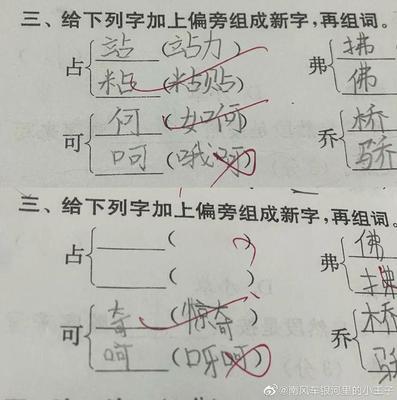 三、给下列字加上偏旁组成新字，再组词。
占 站(站力) 弗 拂
粘(粘贴) 佛
可 何(如何) 乔 桥
呵(哦呵) 骄
三、给下列字加上偏旁组成新字，再组词。
占 ( ) 弗 佛
( ) 拂
可 奇(惊奇) 乔 桥
呵(呀呵) 骄
@南风车银河里的小王子